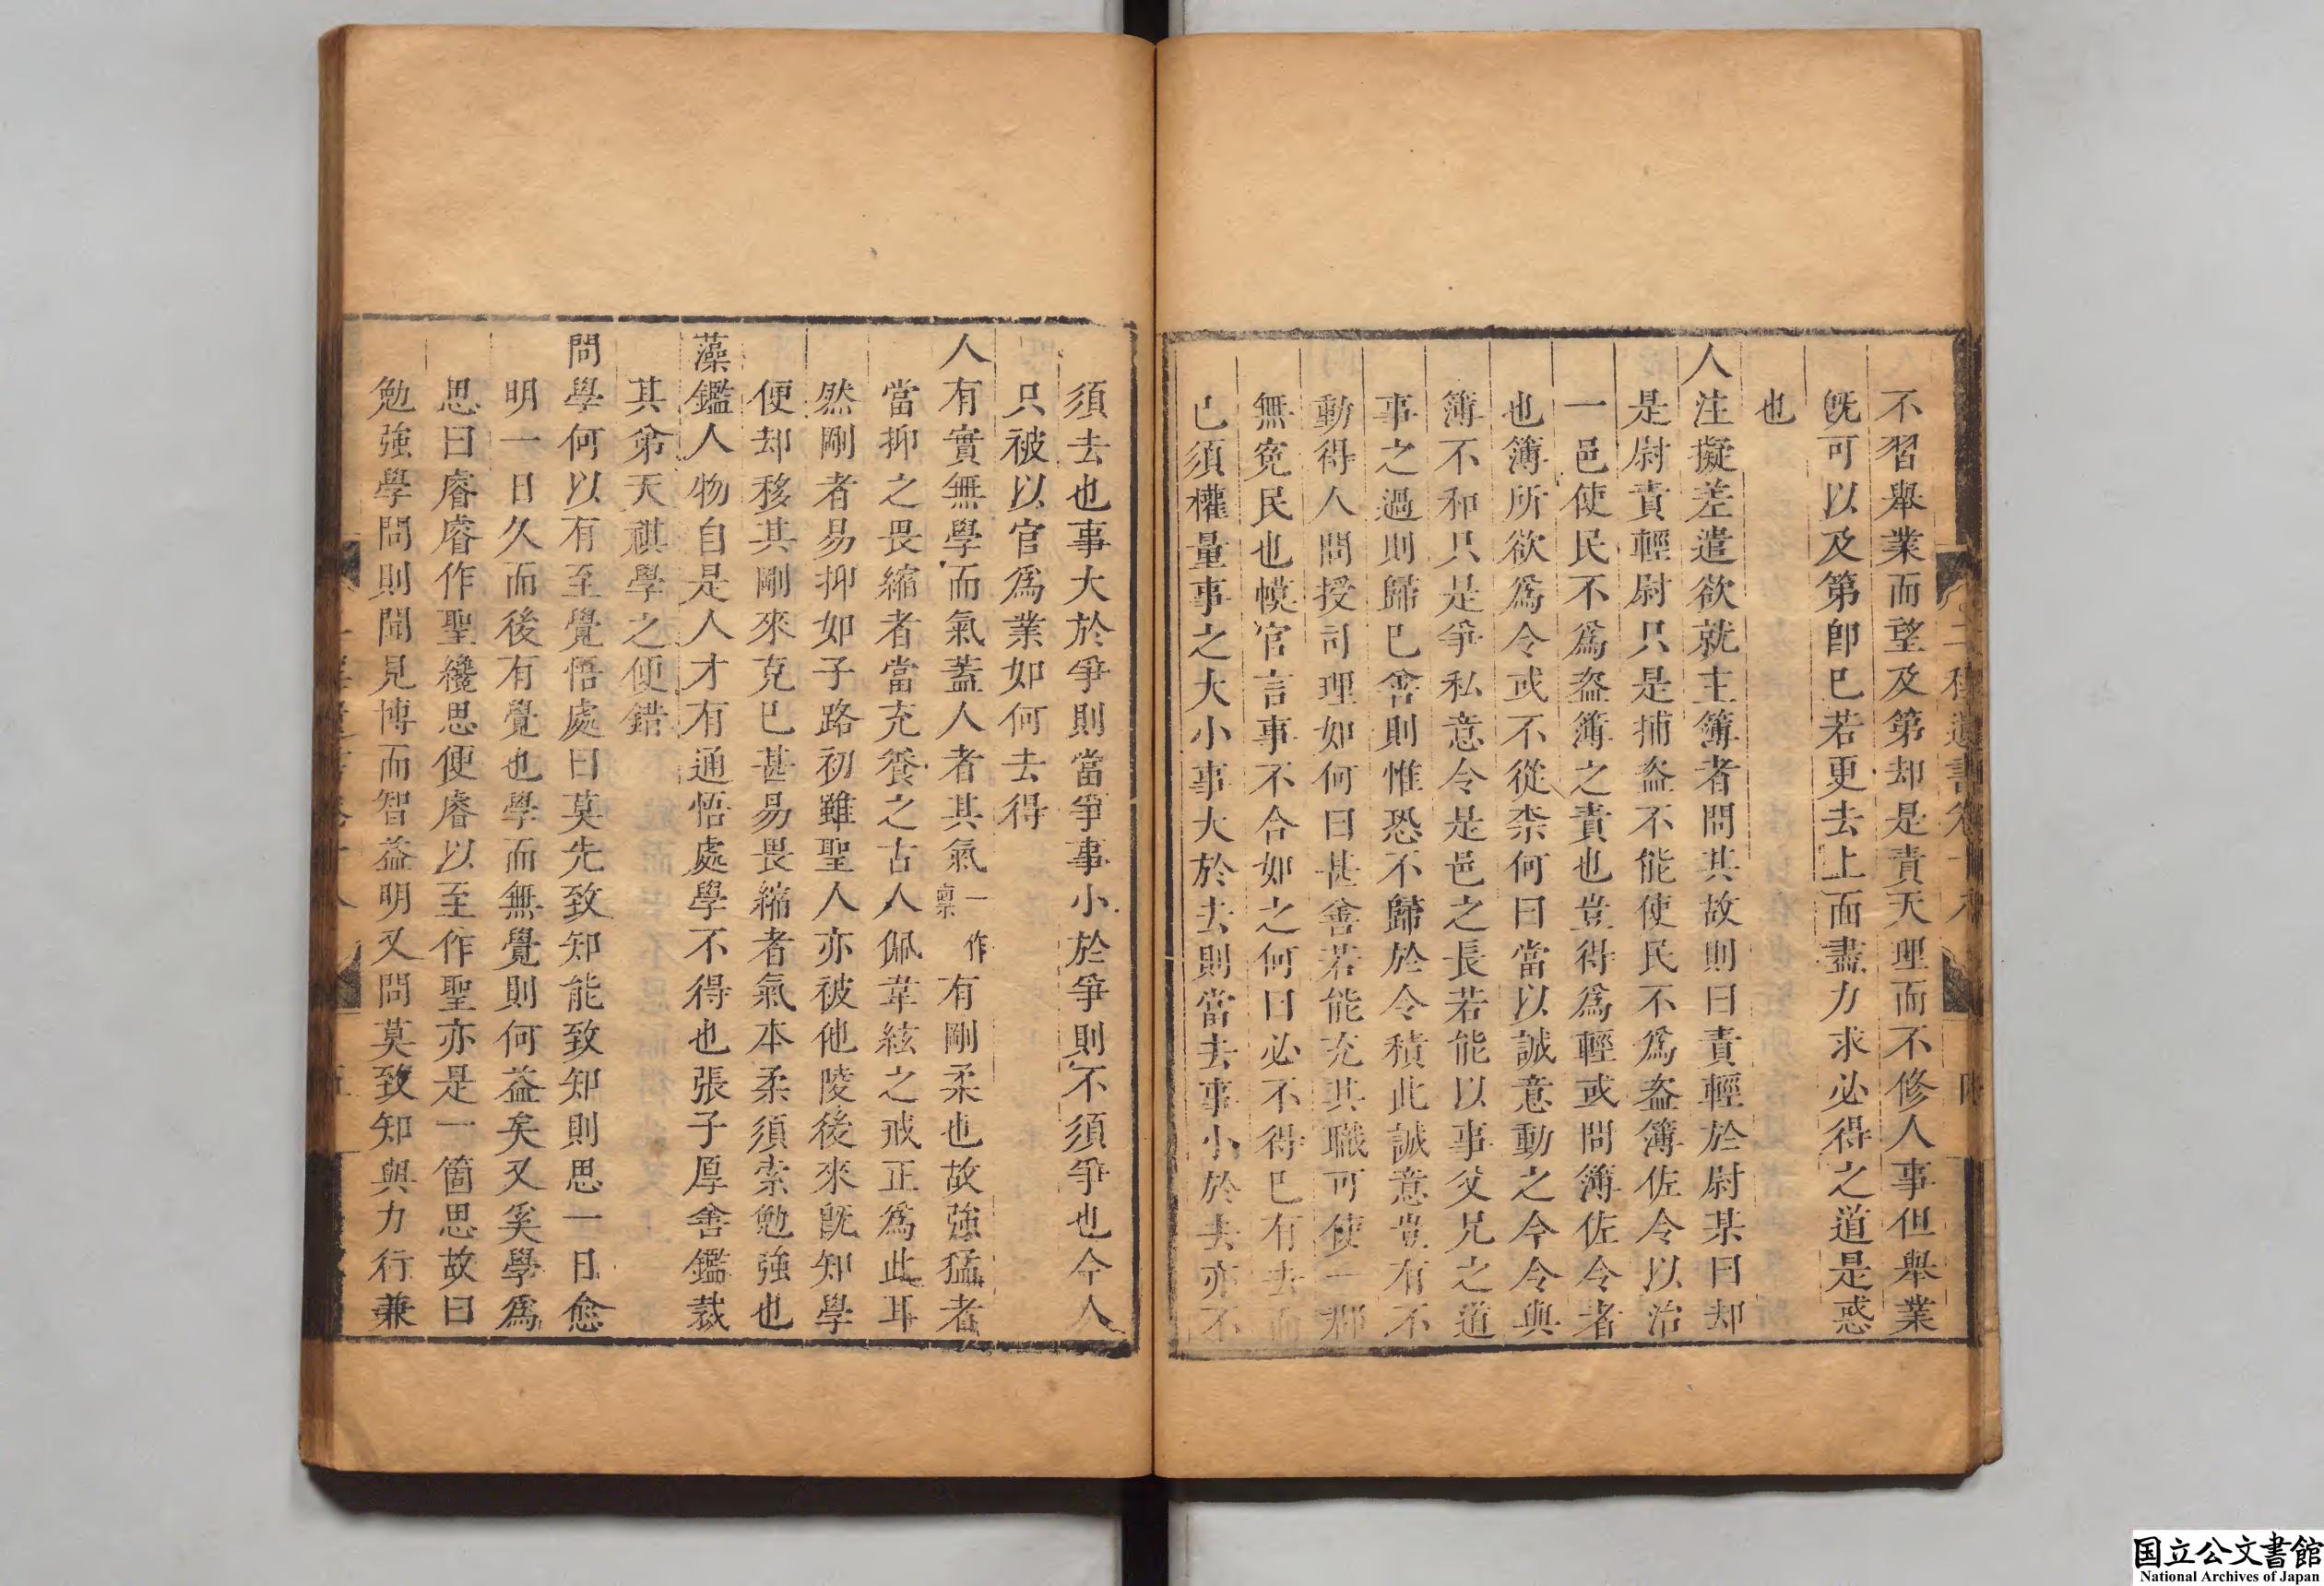 不習舉業而望及第却是責天理而不修人事但舉業
旣可以及第卽已若更去上面盡力求必得之道是惑
也
人注擬差遣欲就主簿者問其故則曰責輕於尉某曰却
是尉責輕尉只是捕盜不能使民不爲盜簿佐令以治
一邑使民不爲盜簿之責也豈得爲輕或問簿佐令者
也簿所欲爲令或不從柰何曰當以誠意動之今令與
簿不和只是爭私意令是邑之長若能以事父兄之道
事之過則歸己善則惟恐不歸於令積此誠意豈有不
動得人問授司理如何曰甚善若能充其職可使一郡
無冤民也幙官言事不合如之何曰必不得已有去而
已須權量事之大小事大於去則當去事小於去亦不
須去也事大於爭則當爭事小於爭則不須爭也今人
只被以官爲業如何去得
人有實無學而氣蓋人者其氣一作稟有剛柔也故強猛者
當抑之畏縮者當充養之古人佩韋絃之戒正爲此耳
然剛者易抑如子路初雖聖人亦被他陵後來旣知學
便却移其剛來克己甚易畏縮者氣本柔須索勉強也
藻鑑人物自是人才有通悟處學不得也張子厚善鑑裁
其弟天祺學之便錯
問學何以有至覺悟處曰莫先致知能致知則思一日愈
明一日久而後有覺也學而無覺則何益矣又奚學爲
思曰睿睿作聖纔思便睿以至作聖亦是一箇思故曰
勉強學問則聞見博而智益明又問莫致知與力行兼
国立公文書館
National Archives of Japan